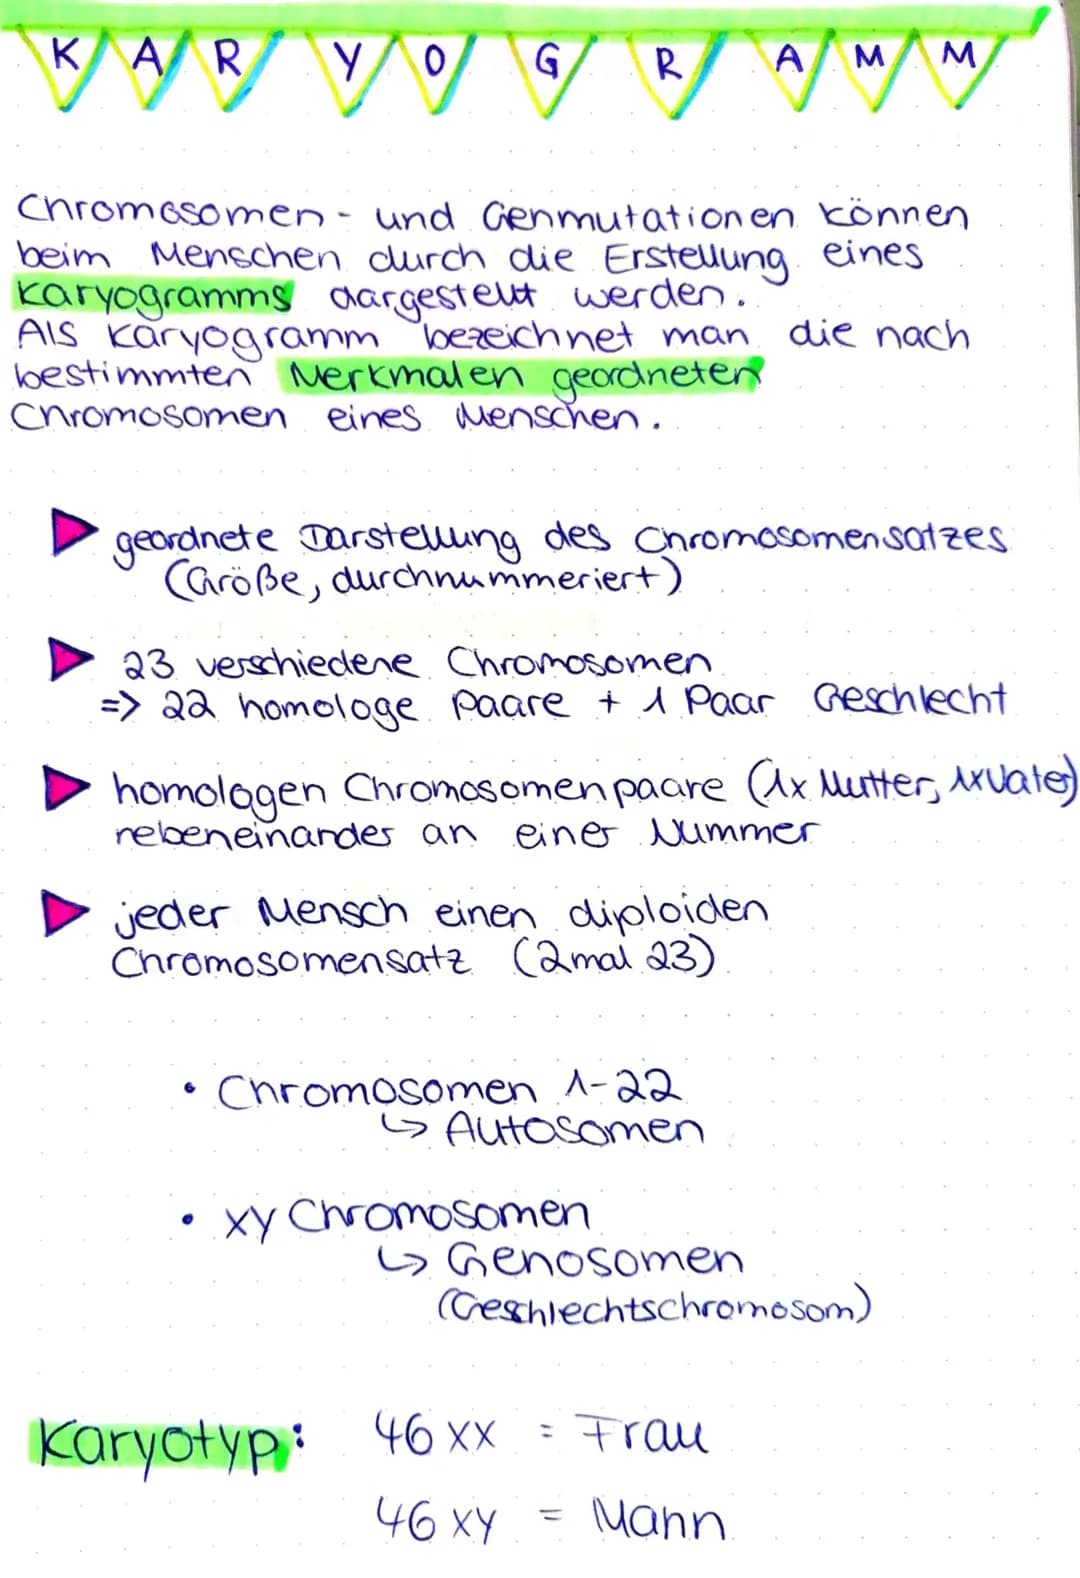 KARYOGRAMM
Chromosomen- und Genmutationen können
beim Menschen durch die Erstellung eines
Karyogramms dargestellt werden.
Als Karyogramm bezeichnet man die nach
bestimmten Merkmalen geordneten
Chromosomen eines Menschen.
geordnete Darstellung des Chromosomensatzes
(Größe, durchnummeriert)
23 verschiedene Chromosomen
=> 22 homologe Paare + 1 Paar Geschlecht
homologen Chromosomenpaare (1x Mutter, 1xVater)
nebeneinander an einer Nummer
jeder Mensch einen diploiden
Chromosomensatz (2mal 23)
• Chromosomen 1-22
↳ Autosomen
• xy Chromosomen
↳ Genosomen
(Geschlechtschromosom)
Karyotyp: 46 xx = Frau
46 xy = Mann